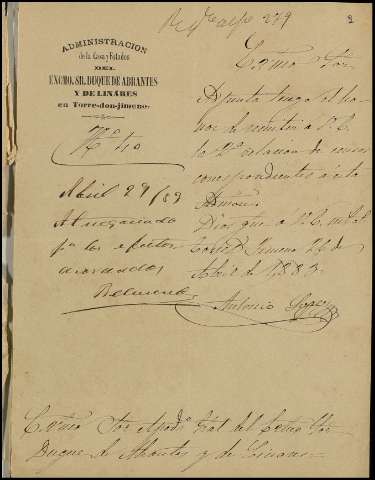 279
2
ADMINISTRACION
de la Casa y Estados
DEL
EXCMO. SR. DUQUE DE ABRANTES
Y DE LINÁRES
en Torre-don-jimeno.
Nº 40
Excmo Sor
Adjunta tengo el ho-
nor de remitir a V.E.
la 2ª relacion de censos
correspondientes á esta
Admón.
Dios gue a V.E. m. a.
Torred. Jimeno 26 de
Abril de 1,889.
Antonio Lopez
Abril 29/89
pa los efectos
acordados
Belmonte
Excmo Sor Apodo Gral del Excmo Sor
Duque de Abrantes y de Linares